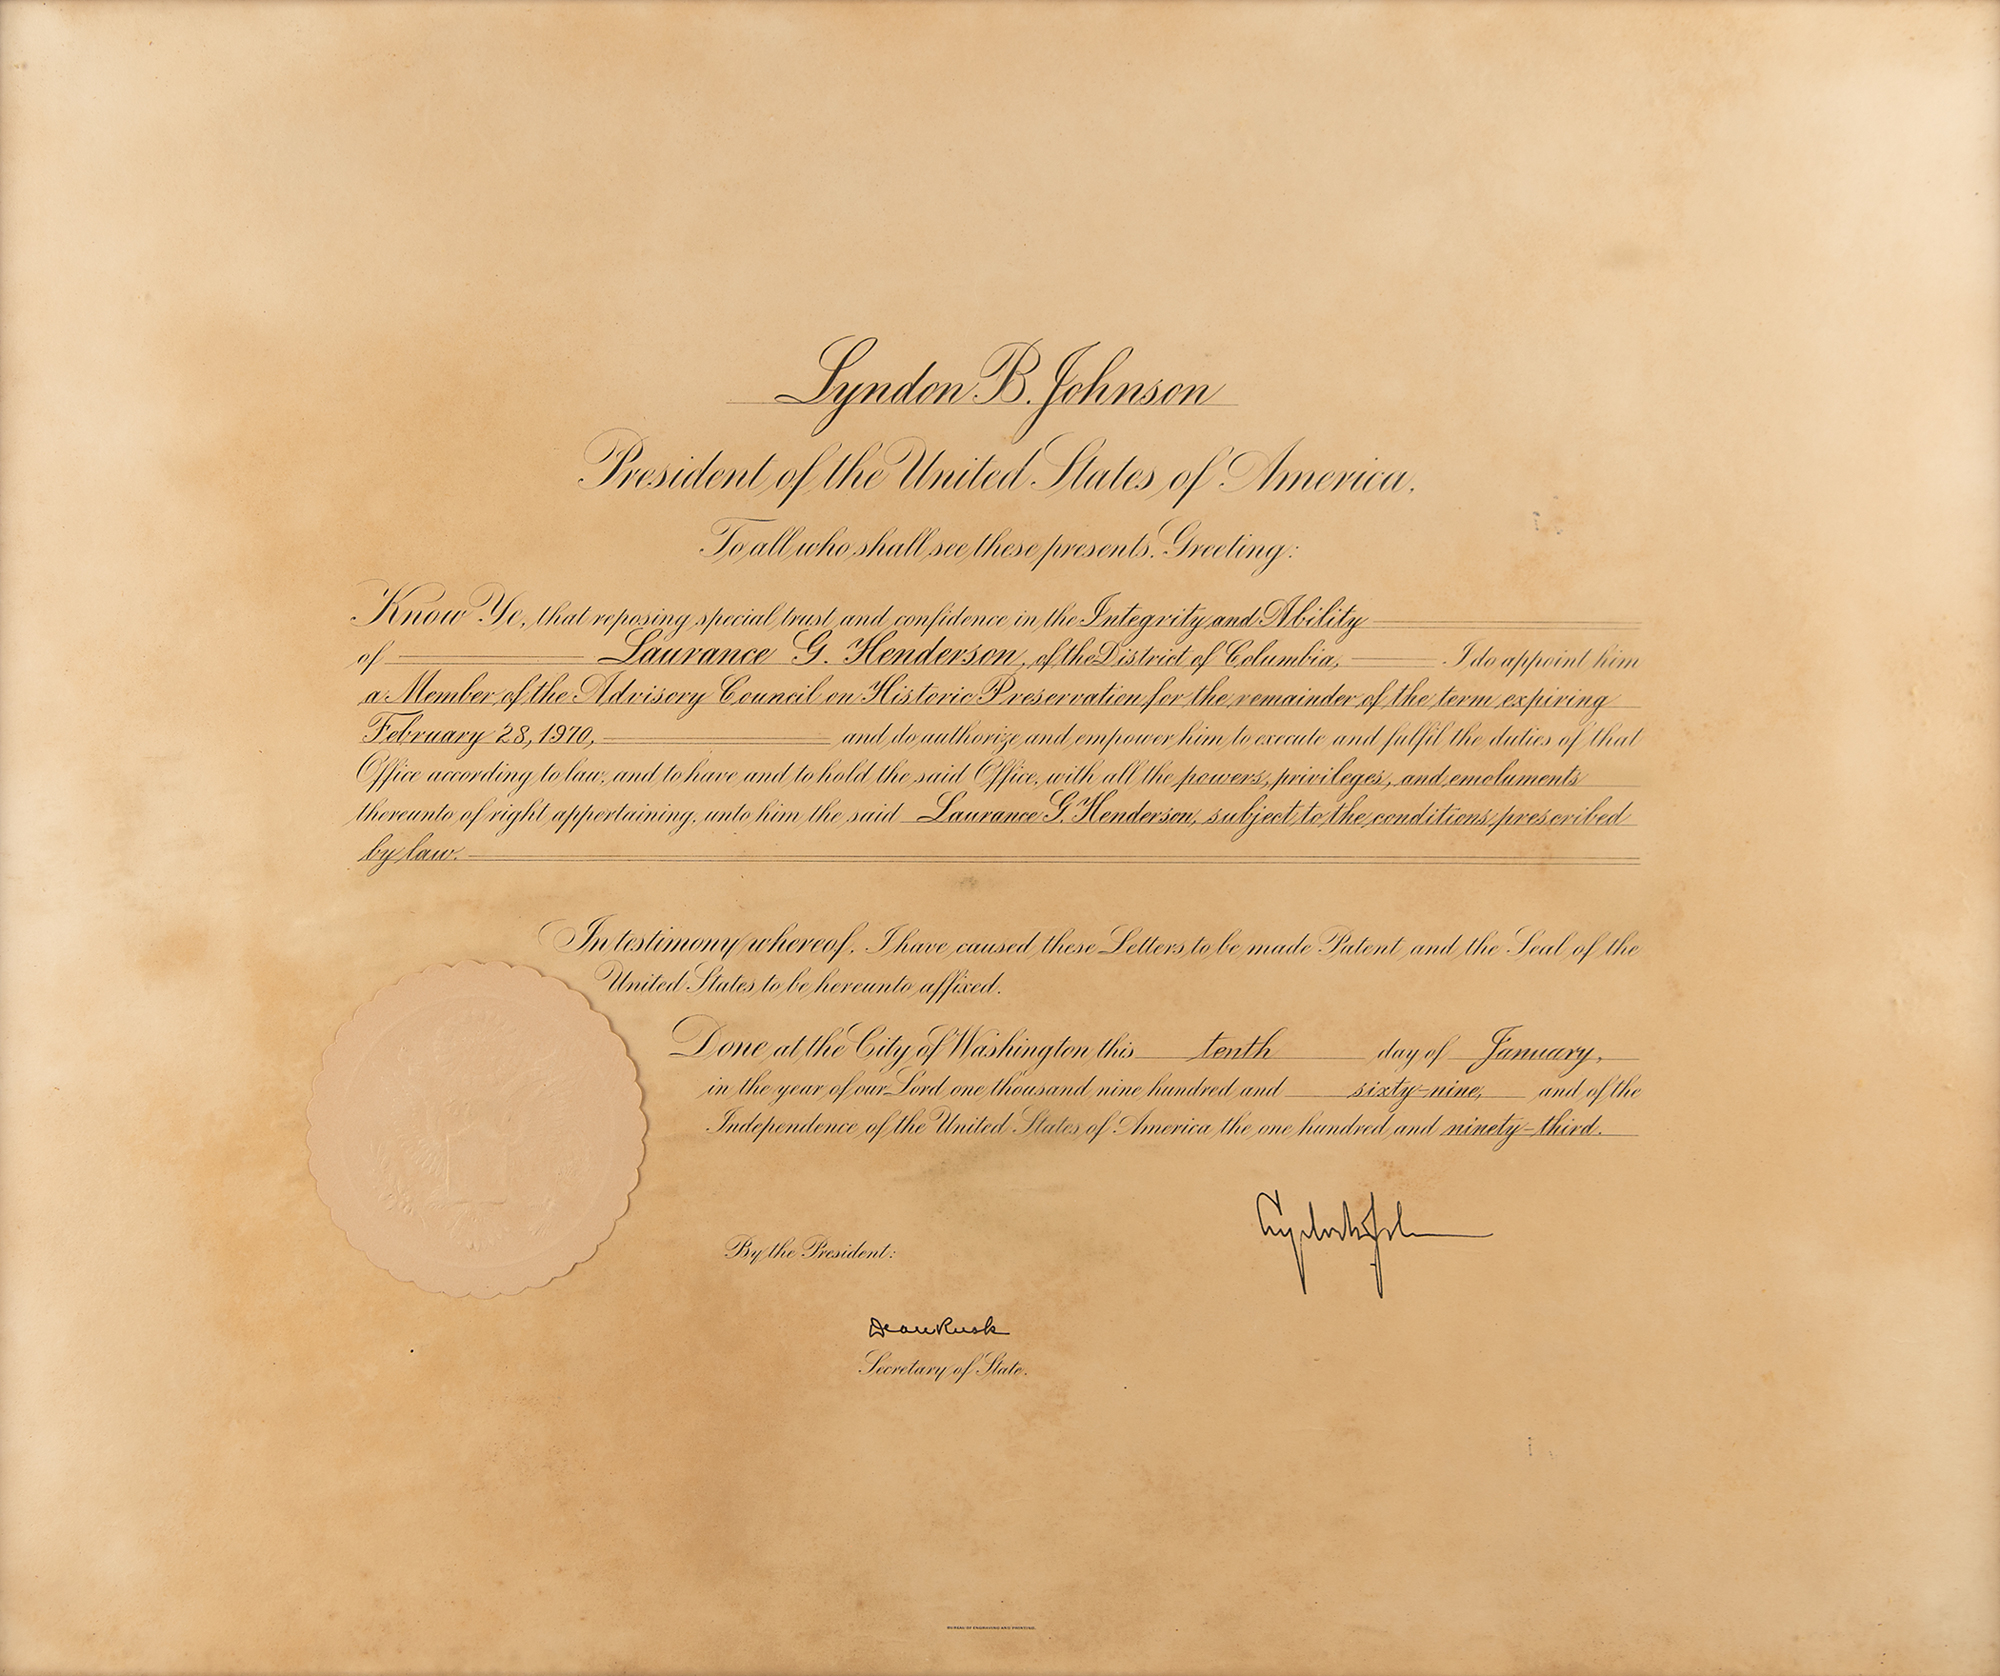 Lyndon B. Johnson
President of the United States of America,
To all who shall see these presents, Greeting:
Know Ye, that reposing special trust and confidence in the Integrity and Ability
of Laurance G. Henderson, of the District of Columbia, I do appoint him
a Member of the Advisory Council on Historic Preservation for the remainder of the term expiring
February 28, 1970, and do authorize and empower him to execute and fulfil the duties of that
Office according to law, and to have and to hold the said Office, with all the powers, privileges, and emoluments
thereunto of right appertaining, unto him the said Laurance G. Henderson, subject to the conditions prescribed
by law.
In testimony whereof, I have caused these Letters to be made Patent and the Seal of the
United States to be hereunto affixed.
Done at the City of Washington this tenth day of January,
in the year of our Lord one thousand nine hundred and sixty-nine, and of the
Independence of the United States of America the one hundred and ninety-third.
Lyndon B. Johnson
By the President:
Dean Rusk
Secretary of State.
BUREAU OF ENGRAVING AND PRINTING.